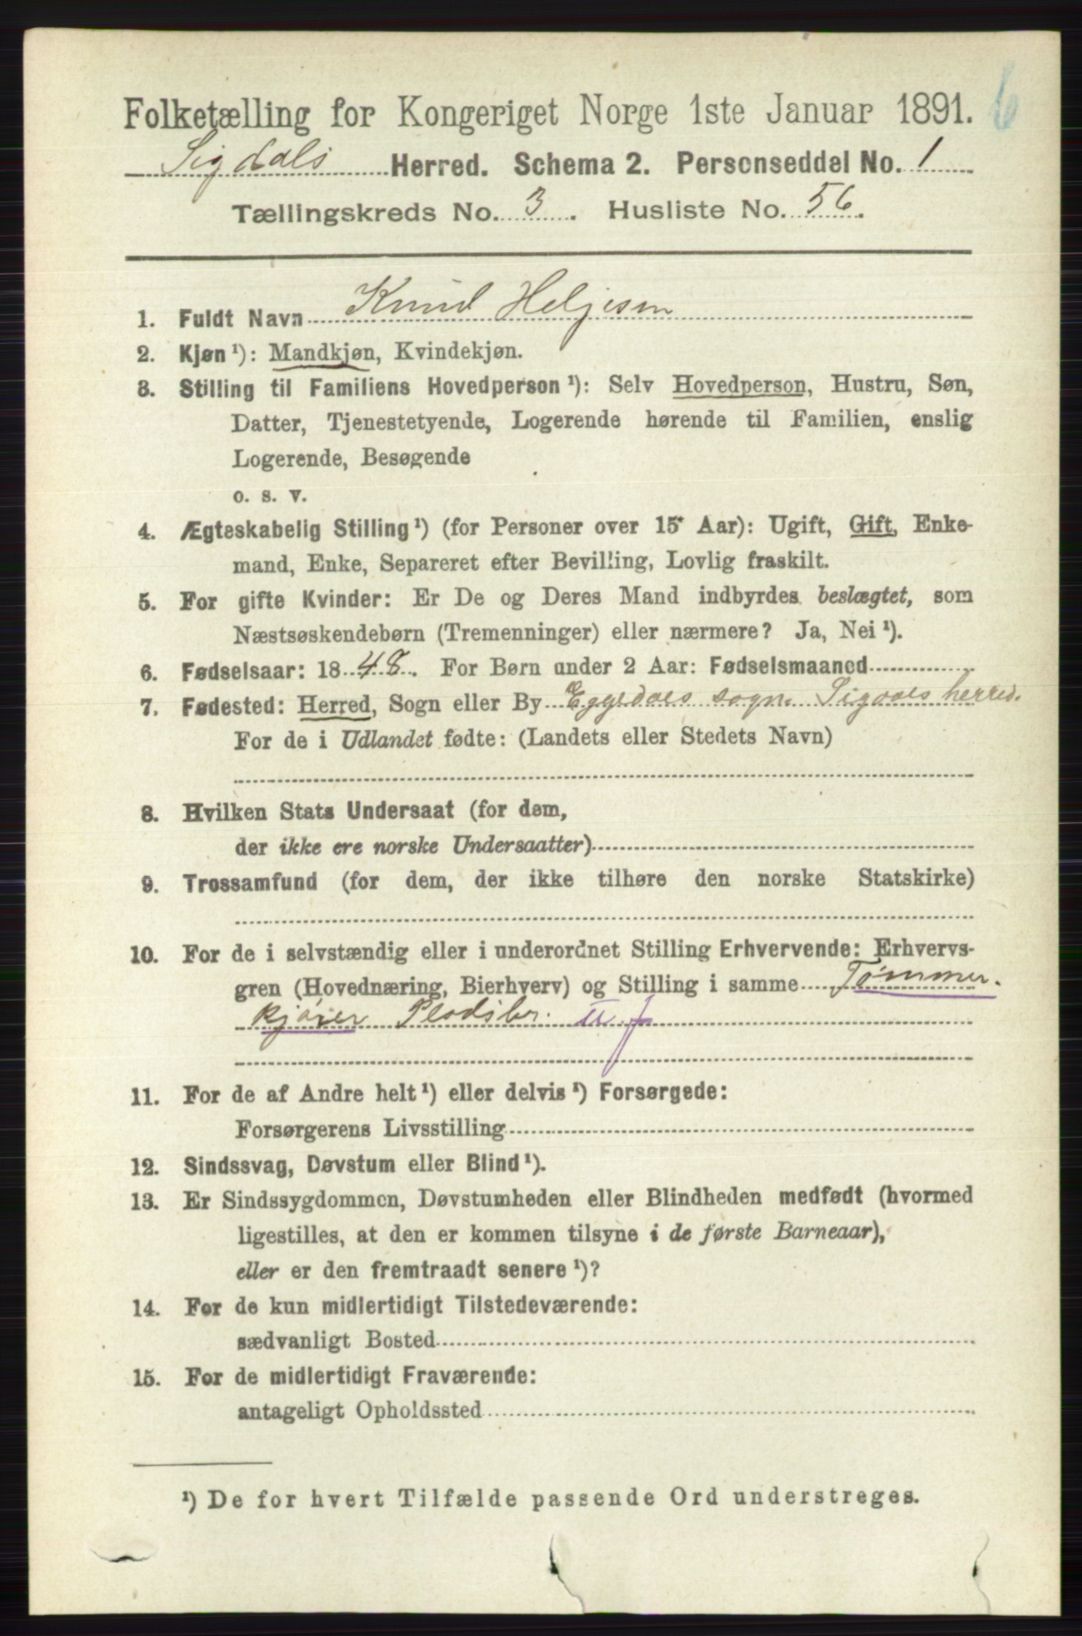 6
Folketælling for Kongeriget Norge 1ste Januar 1891.
Sigdals Herred. Schema 2. Personseddel No. 1
Tællingskreds No. 3. Husliste No. 56.
1. Fuldt Navn Knud Heljesen
2. Kjøn ¹): Mandkjøn, Kvindekjøn.
3. Stilling til Familiens Hovedperson ¹): Selv Hovedperson, Hustru, Søn,
Datter, Tjenestetyende, Logerende hørende til Familien, enslig
Logerende, Besøgende
o. s. v.
4. Ægteskabelig Stilling ¹) (for Personer over 15 Aar): Ugift, Gift, Enke-
mand, Enke, Separeret efter Bevilling, Lovlig fraskilt.
5. For gifte Kvinder: Er De og Deres Mand indbyrdes beslægtet, som
Næstsøskendebørn (Tremenninger) eller nærmere? Ja, Nei ¹).
6. Fødselsaar: 1848. For Børn under 2 Aar: Fødselsmaaned
7. Fødested: Herred, Sogn eller By Eggedals sogn Sigdals herred.
For de i Udlandet fødte: (Landets eller Stedets Navn)
8. Hvilken Stats Undersaat (for dem,
der ikke ere norske Undersaatter)
9. Trossamfund (for dem, der ikke tilhøre den norske Statskirke)
10. For de i selvstændig eller i underordnet Stilling Erhvervende: Erhvervs-
gren (Hovednæring, Bierhverv) og Stilling i samme Tømmer-
kjører Pladsbr.
11. For de af Andre helt ¹) eller delvis ¹) Forsørgede:
Forsørgerens Livsstilling
12. Sindssvag, Døvstum eller Blind ¹).
13. Er Sindssygdommen, Døvstumheden eller Blindheden medfødt (hvormed
ligestilles, at den er kommen tilsyne i de første Barneaar),
eller er den fremtraadt senere ¹)?
14. For de kun midlertidigt Tilstedeværende:
sædvanligt Bosted
15. For de midlertidigt Fraværende:
antageligt Opholdssted
¹) De for hvert Tilfælde passende Ord understreges.